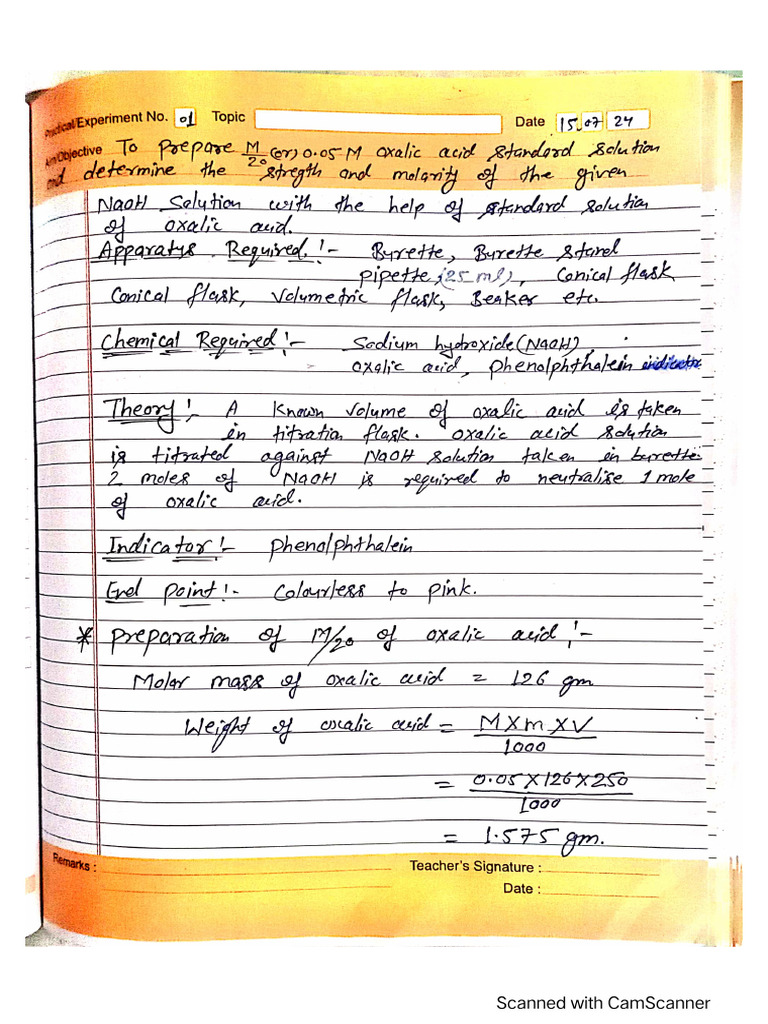 Practical/Experiment No. 01 Topic Date 15 07 24
Aim/Objective To prepare M/20 (or) 0.05 M oxalic acid standard solution
and determine the stregth and molarity of the given
NaOH Solution with the help of standard solution
of oxalic acid.
Apparatus Required :- Burette, Burette stand
pipette, (25 ml), Conical flask
Conical flask, Volumetric flask, Beaker etc.
Chemical Required :- Sodium hydroxide (NaOH),
oxalic acid, phenolphthalein indicator
Theory :- A known volume of oxalic acid is taken
in titration flask. oxalic acid solution
is titrated against NaOH solution taken in burette
2 moles of NaOH is required to neutralise 1 mole
of oxalic acid.
Indicator :- phenolphthalein
End point :- Colourless to pink.
* preparation of M/20 of oxalic acid :-
Molar mass of oxalic acid = 126 gm
Weight of oxalic acid = M X m X V / 1000
= 0.05 X 126 X 250 / 1000
= 1.575 gm.
Remarks : Teacher's Signature :
Date :
Scanned with CamScanner